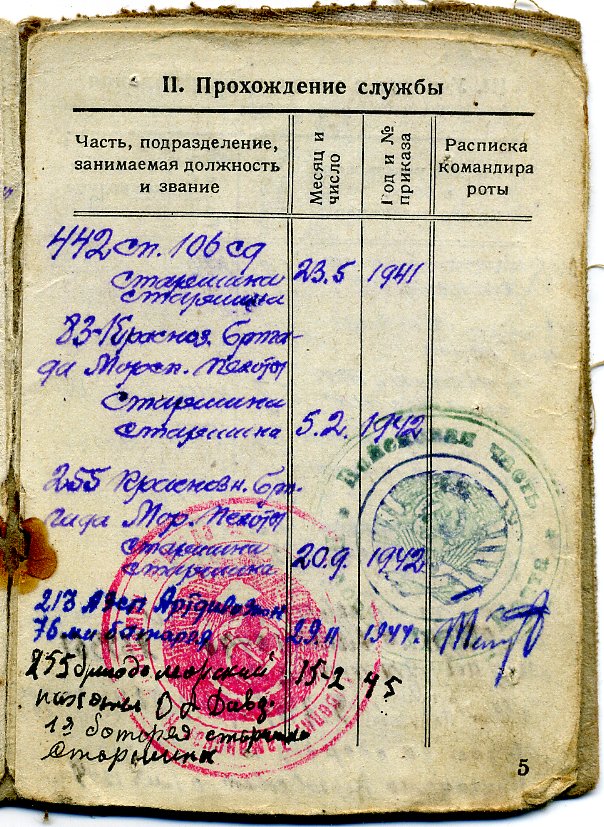 II. Прохождение службы
Часть, подразделение,
занимаемая должность
и звание
Месяц и
число
Год и №
приказа
Расписка
командира
роты
442 сп. 106 сд
старшина 23.5 1941
старшина
83-Красноз. Брига-
да Морск. пехоты
старшина
старшина 5.2. 1942
255 Краснозн. Бри-
гада Мор. пехоты
старшина
старшина 20.9. 1942
213
76 мм батарея 29.11 1944.
255 бригада морский 15-2 45
пехоты
1я батарея старшина
Старшина
Войсковая часть
5